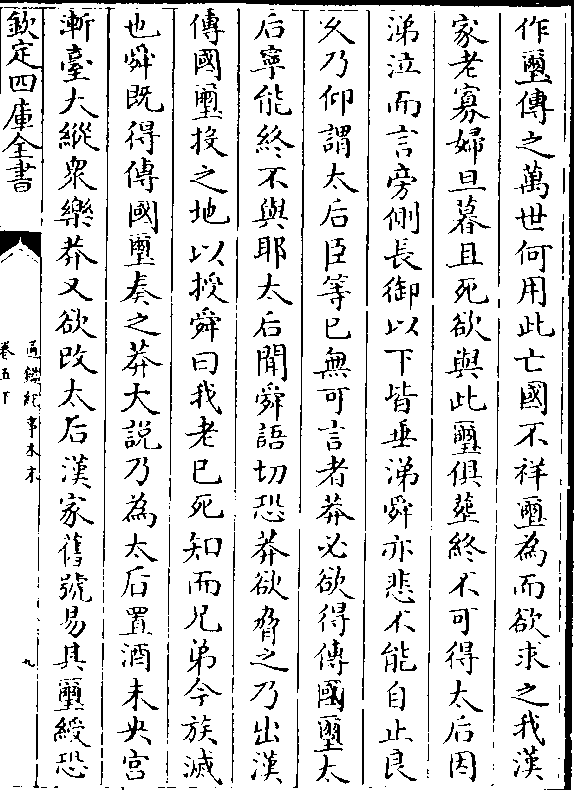 作璽傳之萬世何用此亡國不祥璽為而欲求之我漢
家老寡婦旦暮且死欲與此璽俱葬終不可得太后因
涕泣而言旁側長御以下皆垂涕舜亦悲不能自止良
乆乃仰謂太后臣等已無可言者莽必欲得傳國璽太
后寧能終不與耶太后聞舜語切恐莽欲脅之乃出漢
傳國璽投之地以授舜曰我老已死知而兄弟今族滅
也舜既得傳國璽奏之莽大說乃為太后置酒未央宮
漸臺大縱衆樂莽又欲改太后漢家舊號易其璽綬恐
欽定四庫全書
通鑑紀事本末
卷五下
九